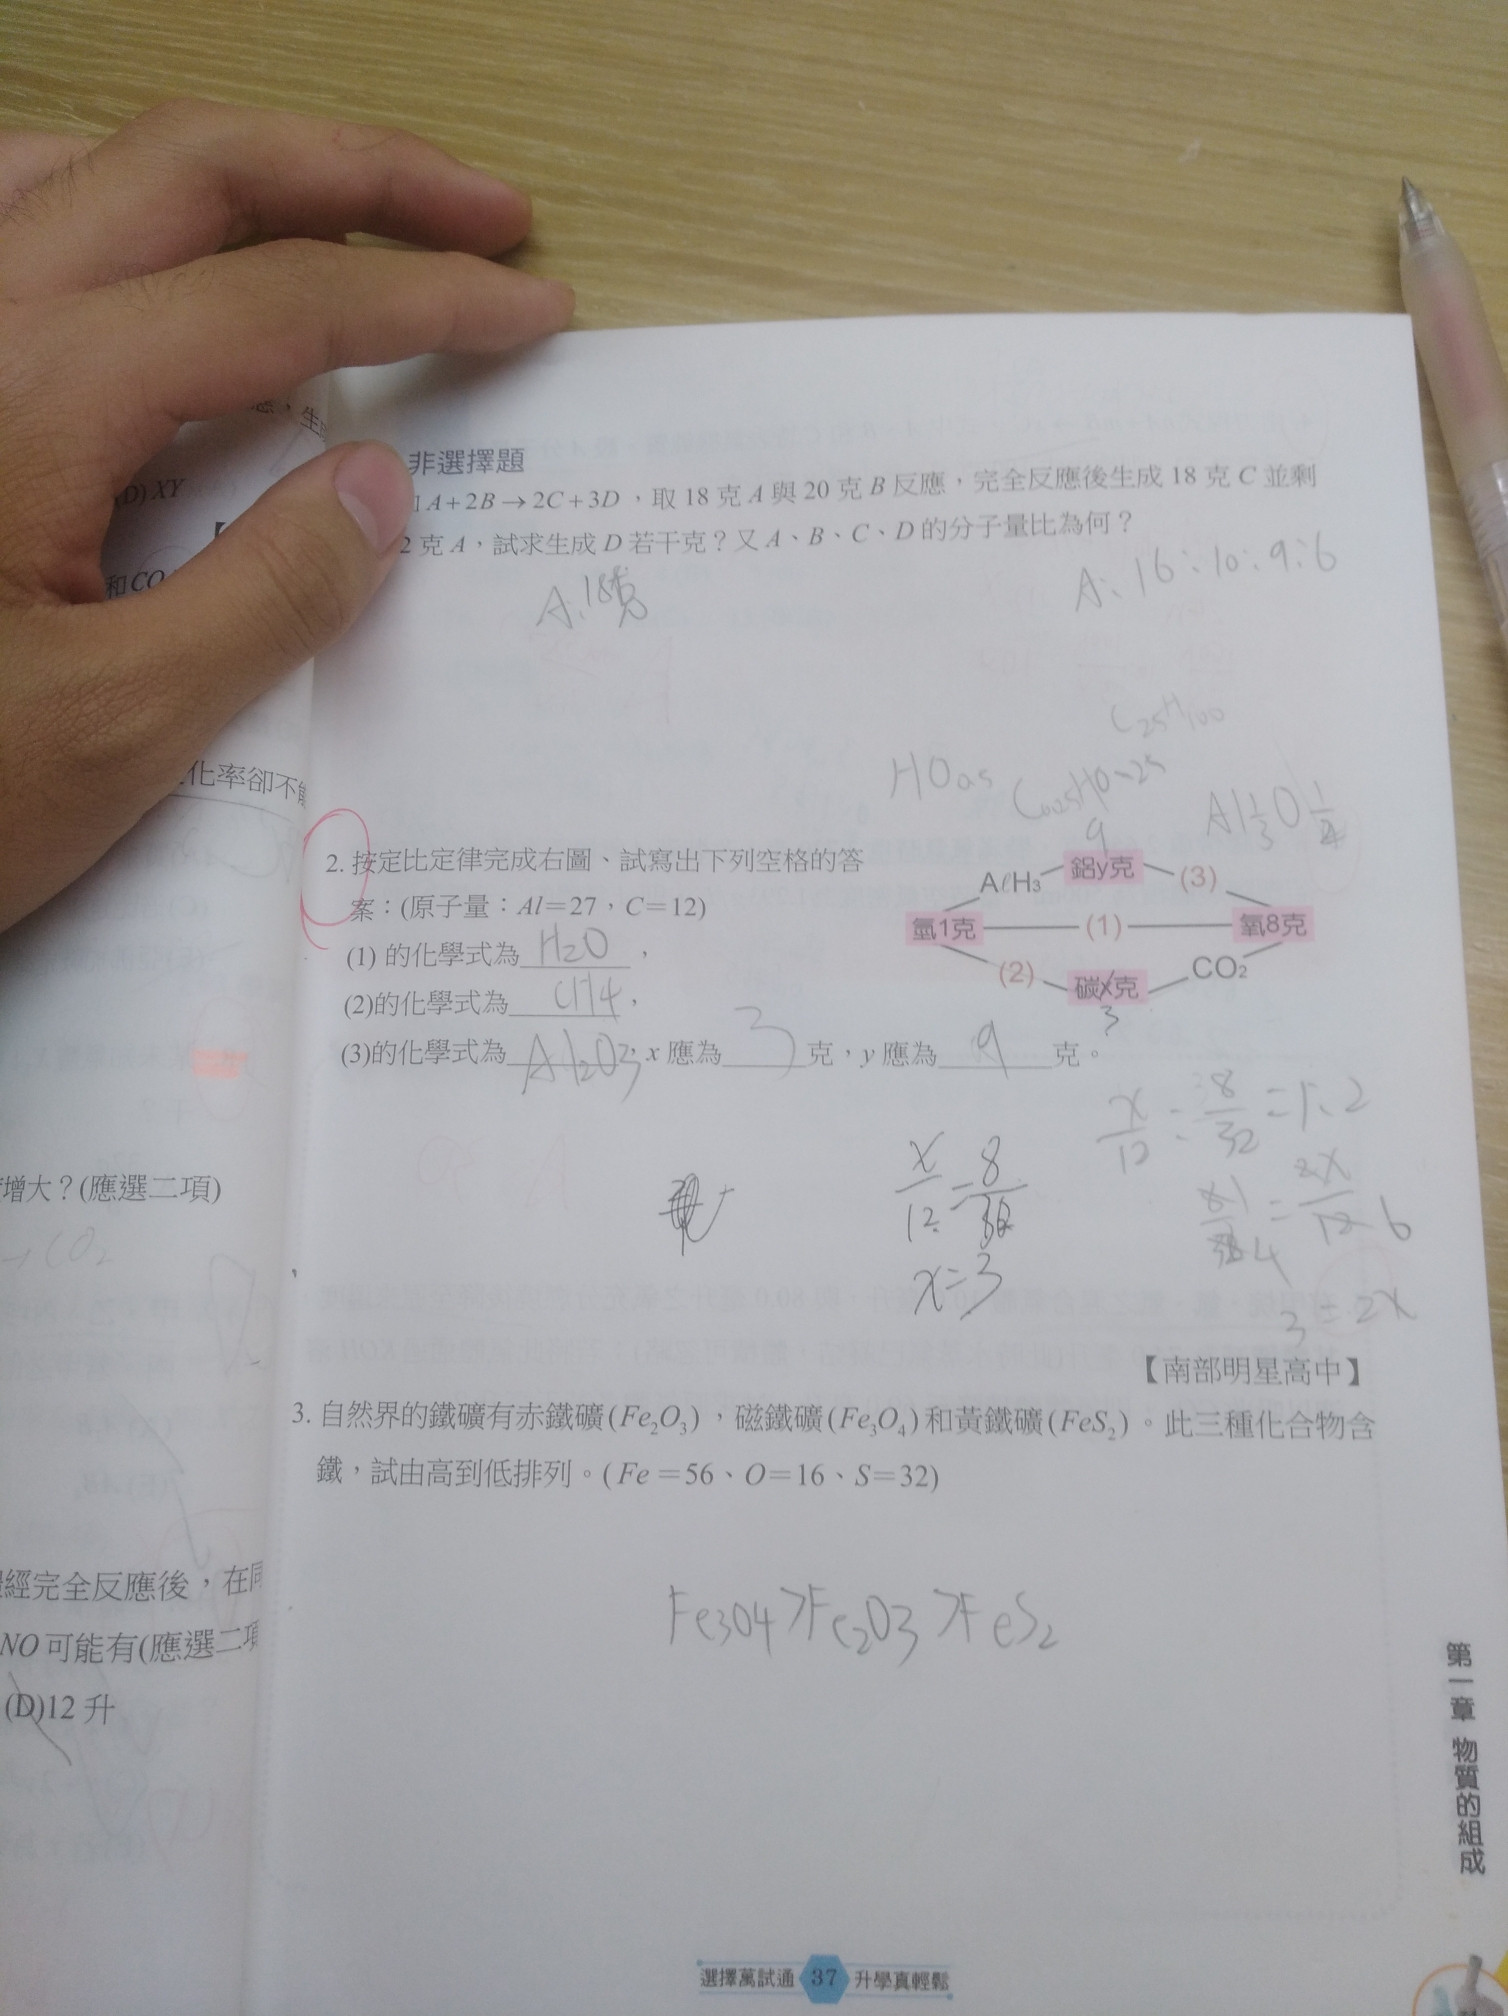 生
(D) XY
和CO
化率卻不
增大？(應選二項)
→CO₂
經完全反應後，在同
NO可能有(應選二項
(D)12升
非選擇題
A+2B→2C+3D，取18克A與20克B反應，完全反應後生成18克C並剩
2克A，試求生成D若干克？又A、B、C、D的分子量比為何？
A:18克
A:16:10:9:6
C25H100
HO0.5
C0.25HO0.25
Al1/3O1/2
2. 按定比定律完成右圖、試寫出下列空格的答
案：(原子量：Al=27，C=12)
(1) 的化學式為 H2O ，
(2)的化學式為 CH4 ，
(3)的化學式為 Al2O3，x應為 3 克，y應為 9 克。
9
AℓH₃ 鋁y克 (3)
氫1克 (1) 氧8克
(2) 碳x克 CO₂
3
x/12 = 8/32
x=3
x/12 : 8/32 = 1:2
3=2x
【南部明星高中】
3. 自然界的鐵礦有赤鐵礦(Fe₂O₃)，磁鐵礦(Fe₃O₄)和黃鐵礦(FeS₂)。此三種化合物含
鐵，試由高到低排列。(Fe=56、O=16、S=32)
Fe3O4>Fe2O3>FeS2
第一章 物質的組成
選擇萬試通 37 升學真輕鬆